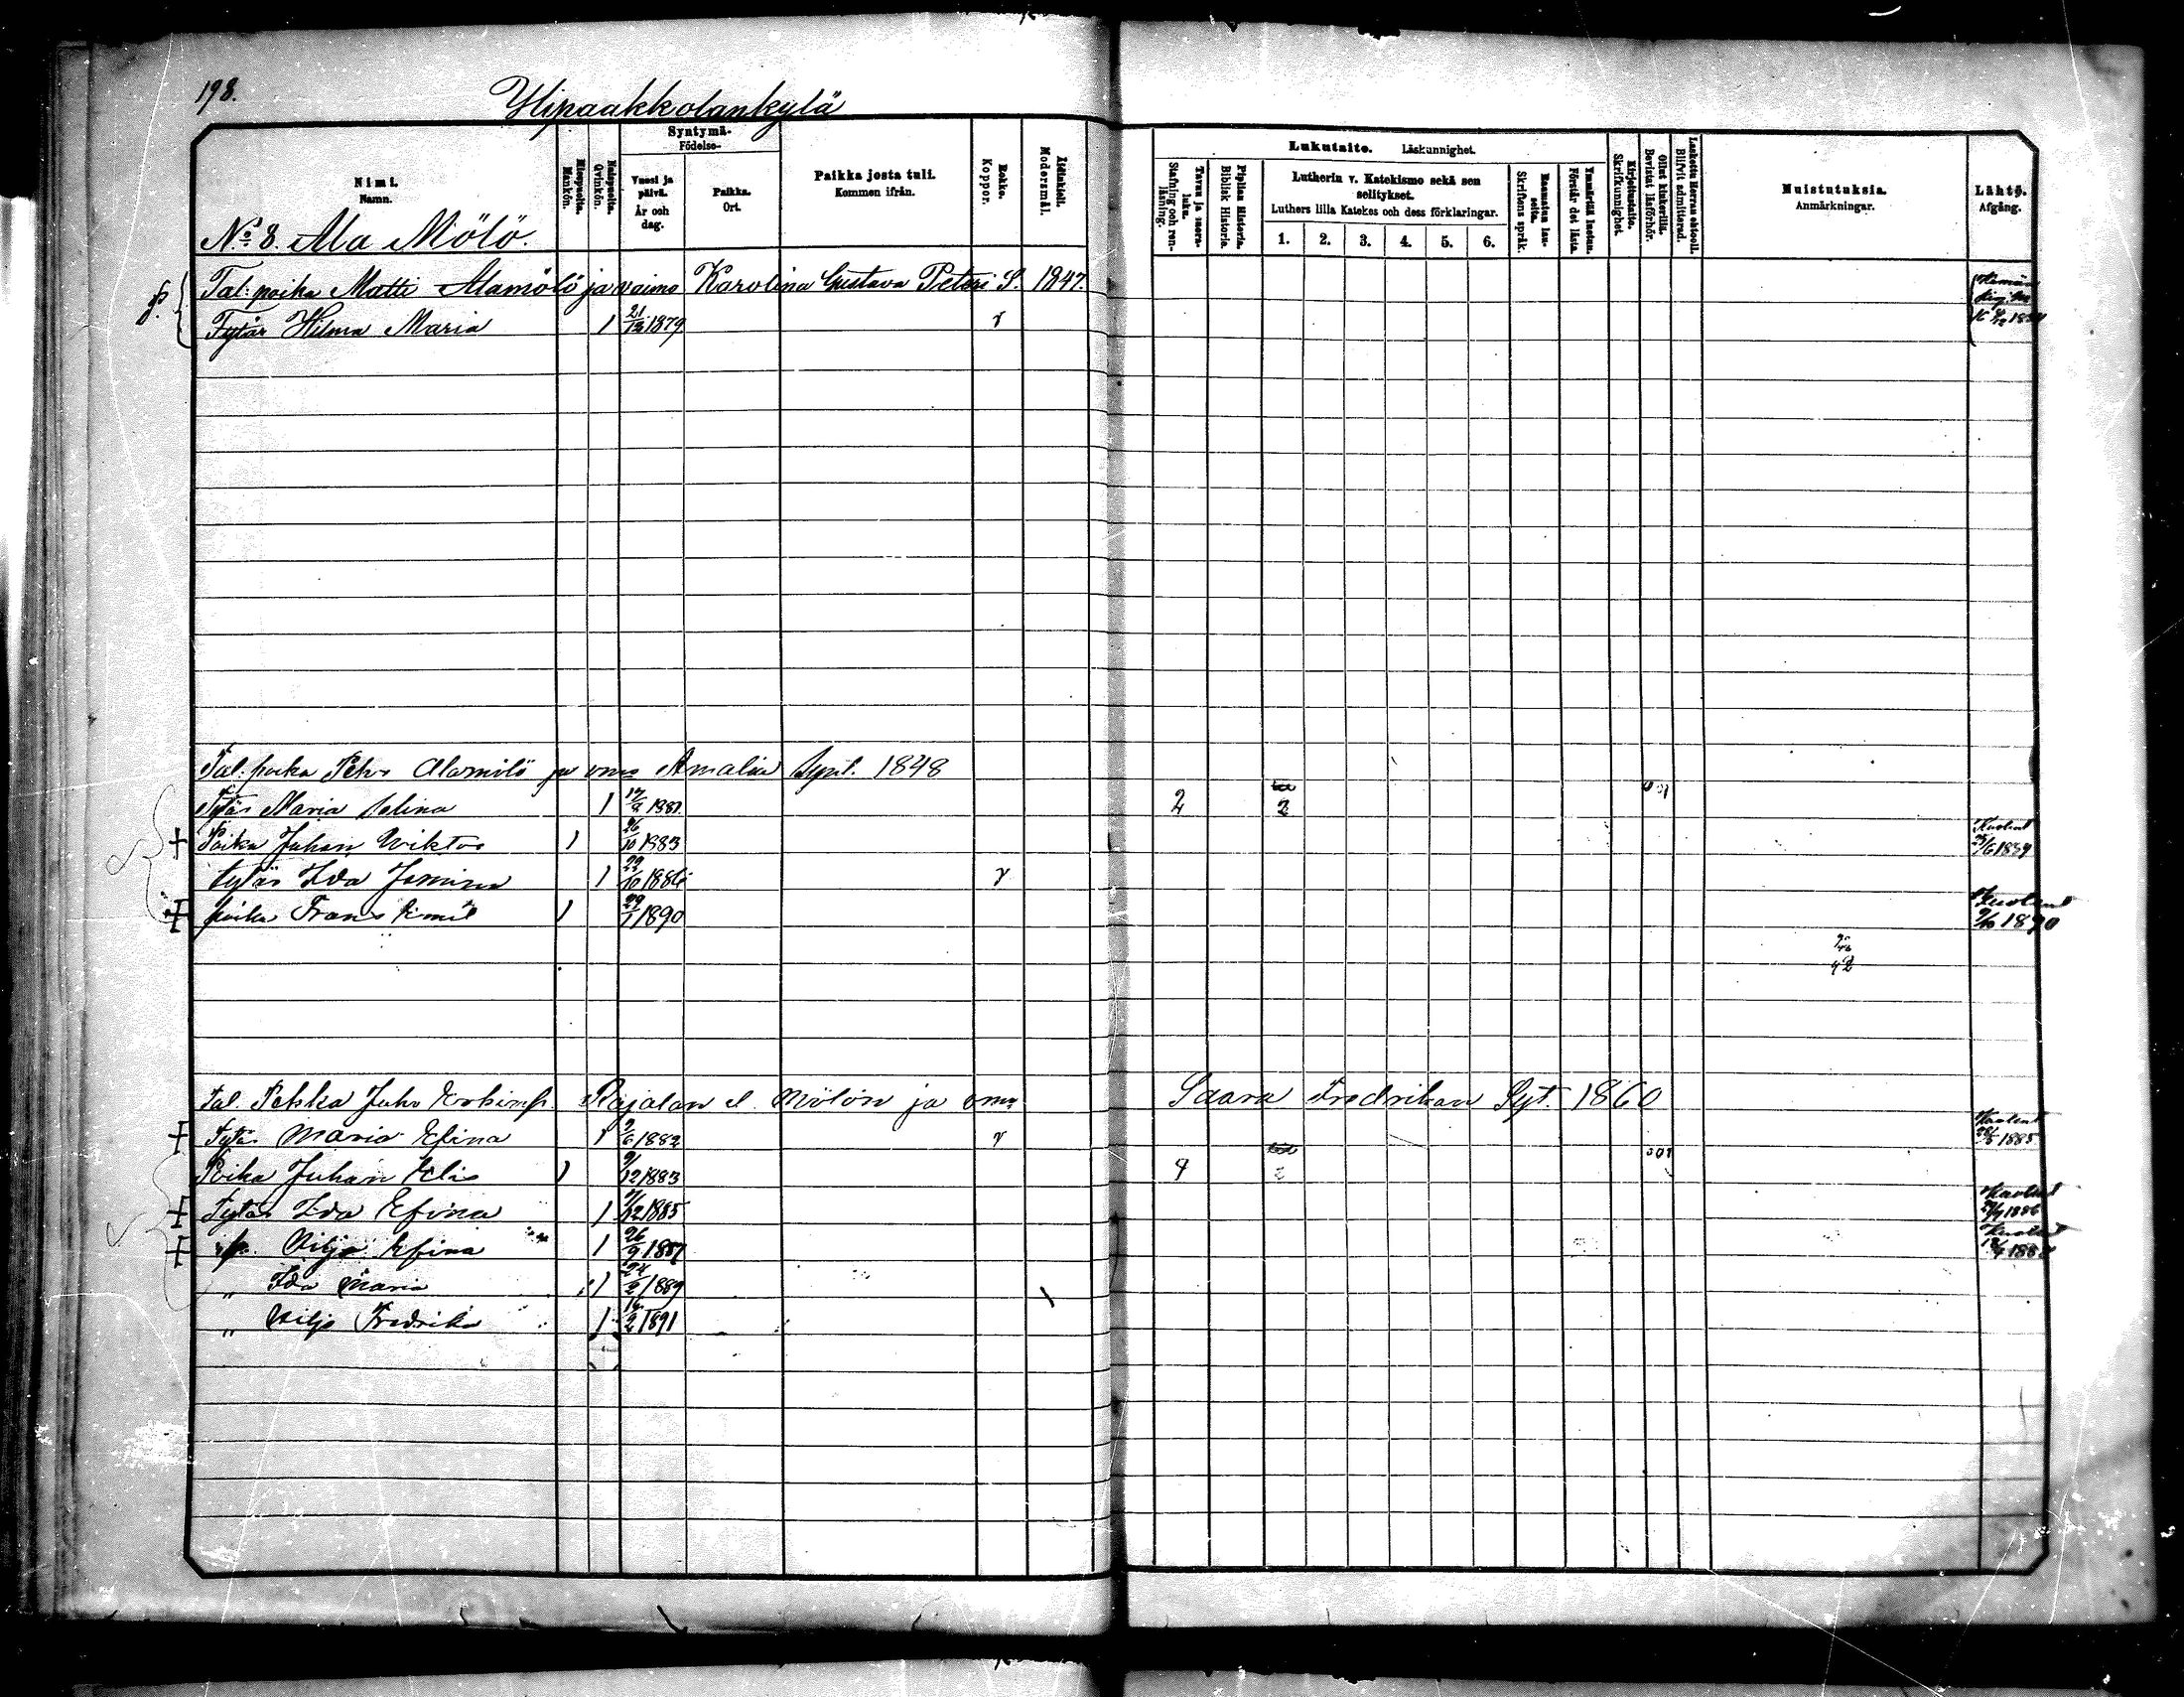 198.
Ylipaakkolankylä
Nimi.
Namn.
Miespuolia.
Mankön.
Naispuolia.
Qvinkön.
Syntymä-
Födelse-
Vuosi ja
päivä.
År och
dag.
Paikka.
Ort.
Paikka josta tuli.
Kommen ifrån.
Rokko.
Koppor.
Äidinkieli.
Modersmål.
Lukutaito. Läskunnighet.
Tavuu ja suora-
luku.
Stafning och ren-
läsning.
Piplian Historia.
Biblisk Historia.
Lutherin v. Katekismo sekä sen
selitykset.
Luthers lilla Katekes och dess förklaringar.
1. 2. 3. 4. 5. 6.
Raamatun lau-
seita.
Skriftens språk.
Ymmärtää luetun.
Förstår det lästa.
Kirjoitustaito.
Skrifkunnighet.
Ollut kinkerillä.
Bevistat läsförhör.
Laskettu Herran ehtooll.
Blifvit admitterad.
Muistutuksia.
Anmärkningar.
Lähtö.
Afgång.
No 8. Ala Mölö.
Tal: poika Matti Alamölö ja vaimo Karolina Gustava Pieteri S. 1847.
Tytär Hilma Maria 1 21/12 1879 v
Tal. poika Alamölö ja Amalia 1848
Tytär Maria Selina 1 17/8 1881. 2 2
+ Poika Juhan Wiktor 1 26/10 1883 Kuollut
tytär Ida 1 29/10 1886 v
+ poika Frans Emil 1 29/1 1890 Kuollut 1890
42
Tal. Pekka Juho Rajalan l. Mölön ja Saara Fredrikan Syt. 1860
+ Tytär Maria Efina 1 2/6 1882 v Kuollut 1885
Poika Juhan Elis 1 9/12 1883 2
+ Tytär Ida Efina 1 12 1885 Kuollut 1886
+ Viljo Efina 1 26/9 1887 Kuollut
„ Ida Maria 1 24/2 1889
„ Viljo Fredrika 1 16/2 1891